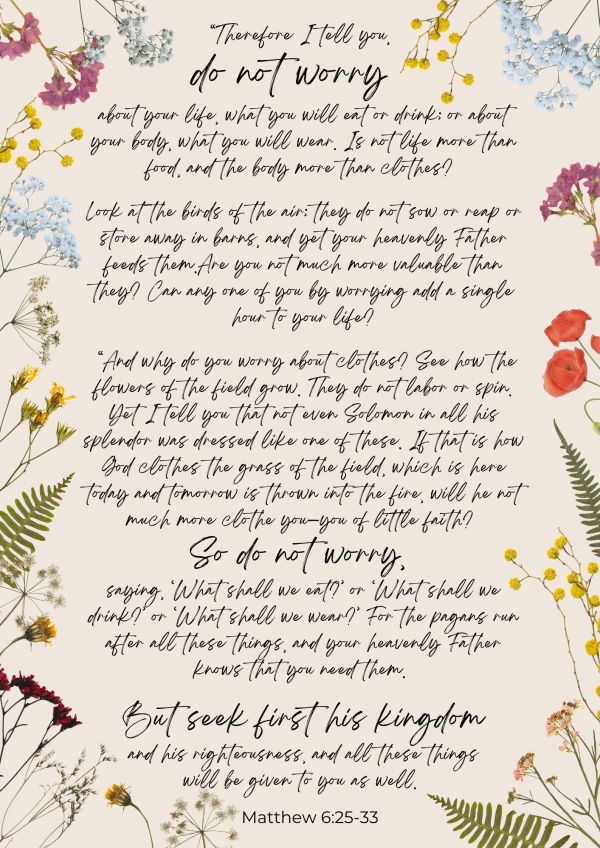 “Therefore I tell you,
do not worry
about your life, what you will eat or drink; or about
your body, what you will wear. Is not life more than
food, and the body more than clothes?
Look at the birds of the air; they do not sow or reap or
store away in barns, and yet your heavenly Father
feeds them.Are you not much more valuable than
they? Can any one of you by worrying add a single
hour to your life?
“And why do you worry about clothes? See how the
flowers of the field grow. They do not labor or spin.
Yet I tell you that not even Solomon in all his
splendor was dressed like one of these. If that is how
God clothes the grass of the field, which is here
today and tomorrow is thrown into the fire, will he not
much more clothe you—you of little faith?
So do not worry,
saying, ‘What shall we eat?’ or ‘What shall we
drink?’ or ‘What shall we wear?’ For the pagans run
after all these things, and your heavenly Father
knows that you need them.
But seek first his kingdom
and his righteousness, and all these things
will be given to you as well.
Matthew 6:25-33